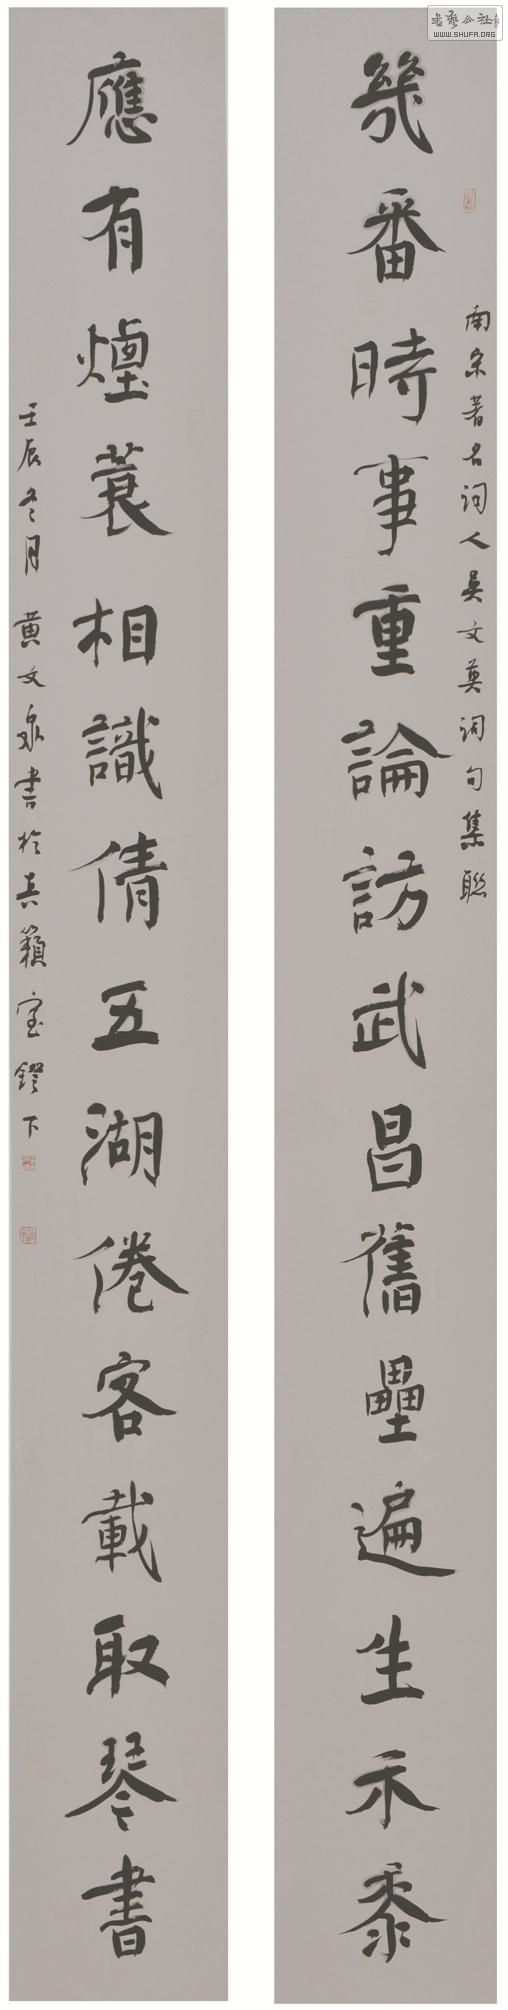 幾番時事重論訪武昌舊壘遍生禾黍
南宋著名詞人吳文英詞句集聯
應有煙蓑相識倩五湖倦客載取琴書
壬辰冬月黃文泉書於吉籟室鐙下
書藝公社
WWW.SHUFA.ORG